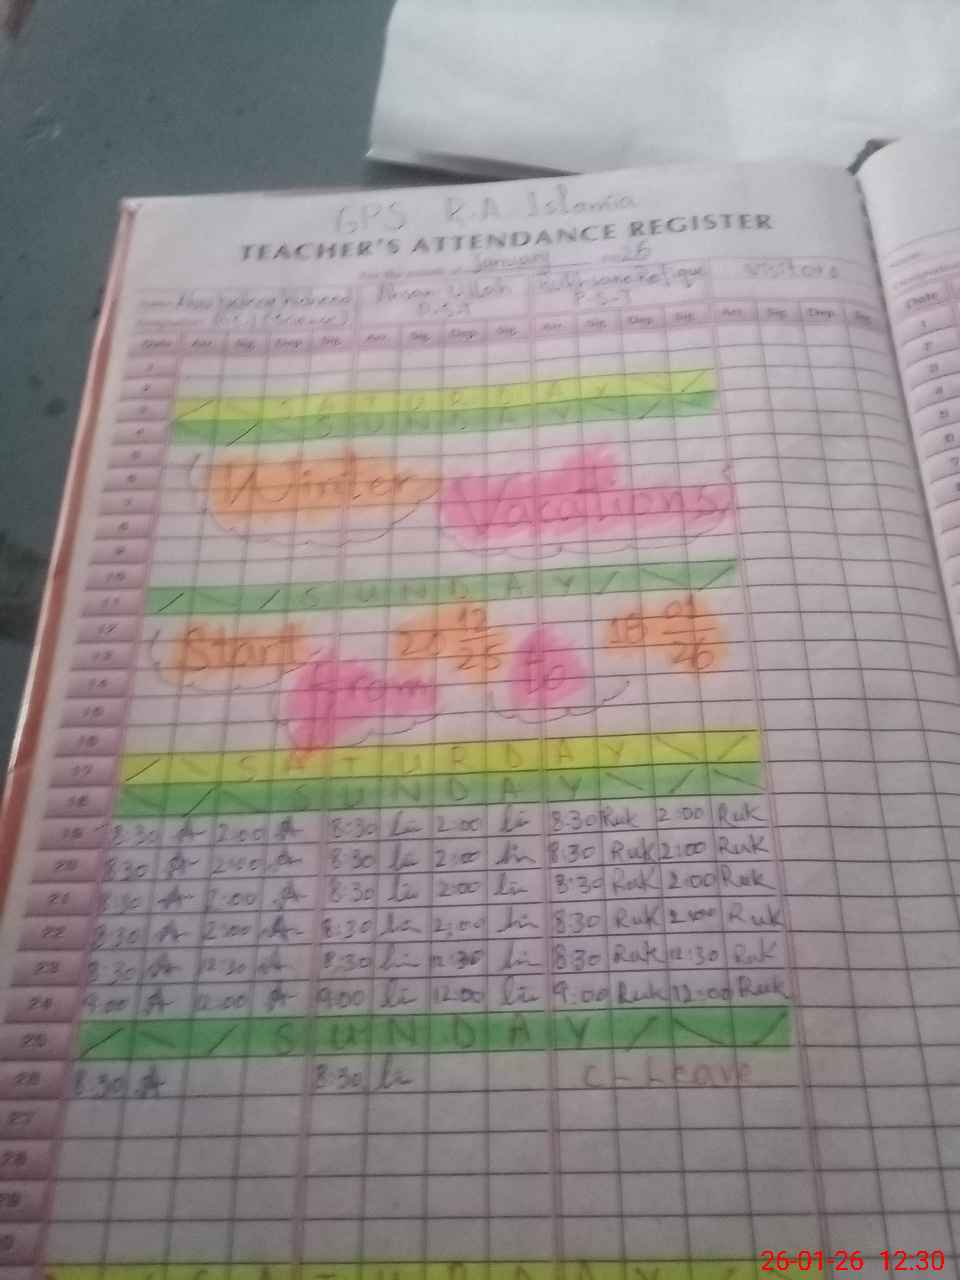 GPS R.A. Islamia
TEACHER'S ATTENDANCE REGISTER
January 26
Ahsan Ullah Visitors
P.S.T P.S.T
Date Arr. Sig. Dep. Sig. Arr. Sig. Dep. Sig. Arr. Sig. Dep. Sig. Arr. Sig. Dep. Sig.
1
2
3 SATURDAY
4 SUNDAY
5
6 Winter
7 Vacations
8
9
10
11 SUNDAY
12
13 Start 20 12/25 to 18 01/26
14 from
15
16
17 SATURDAY
18 SUNDAY
19 8:30 A 2:00 A 8:30 li 2:00 li 8:30 Ruk 2:00 Ruk
20 8:30 A 2:00 A 8:30 li 2:00 li 8:30 Ruk 2:00 Ruk
21 8:30 A 2:00 A 8:30 li 2:00 li 8:30 Ruk 2:00 Ruk
22 8:30 A 2:00 A 8:30 li 2:00 li 8:30 Ruk 2:00 Ruk
23 8:30 A 12:30 A 8:30 li 12:30 li 8:30 Ruk 12:30 Ruk
24 9:00 A 12:00 A 9:00 li 12:00 li 9:00 Ruk 12:00 Ruk
25 SUNDAY
26 8:30 A 8:30 li C-Leave
27
28
29
SATURDAY
26-01-26 12:30